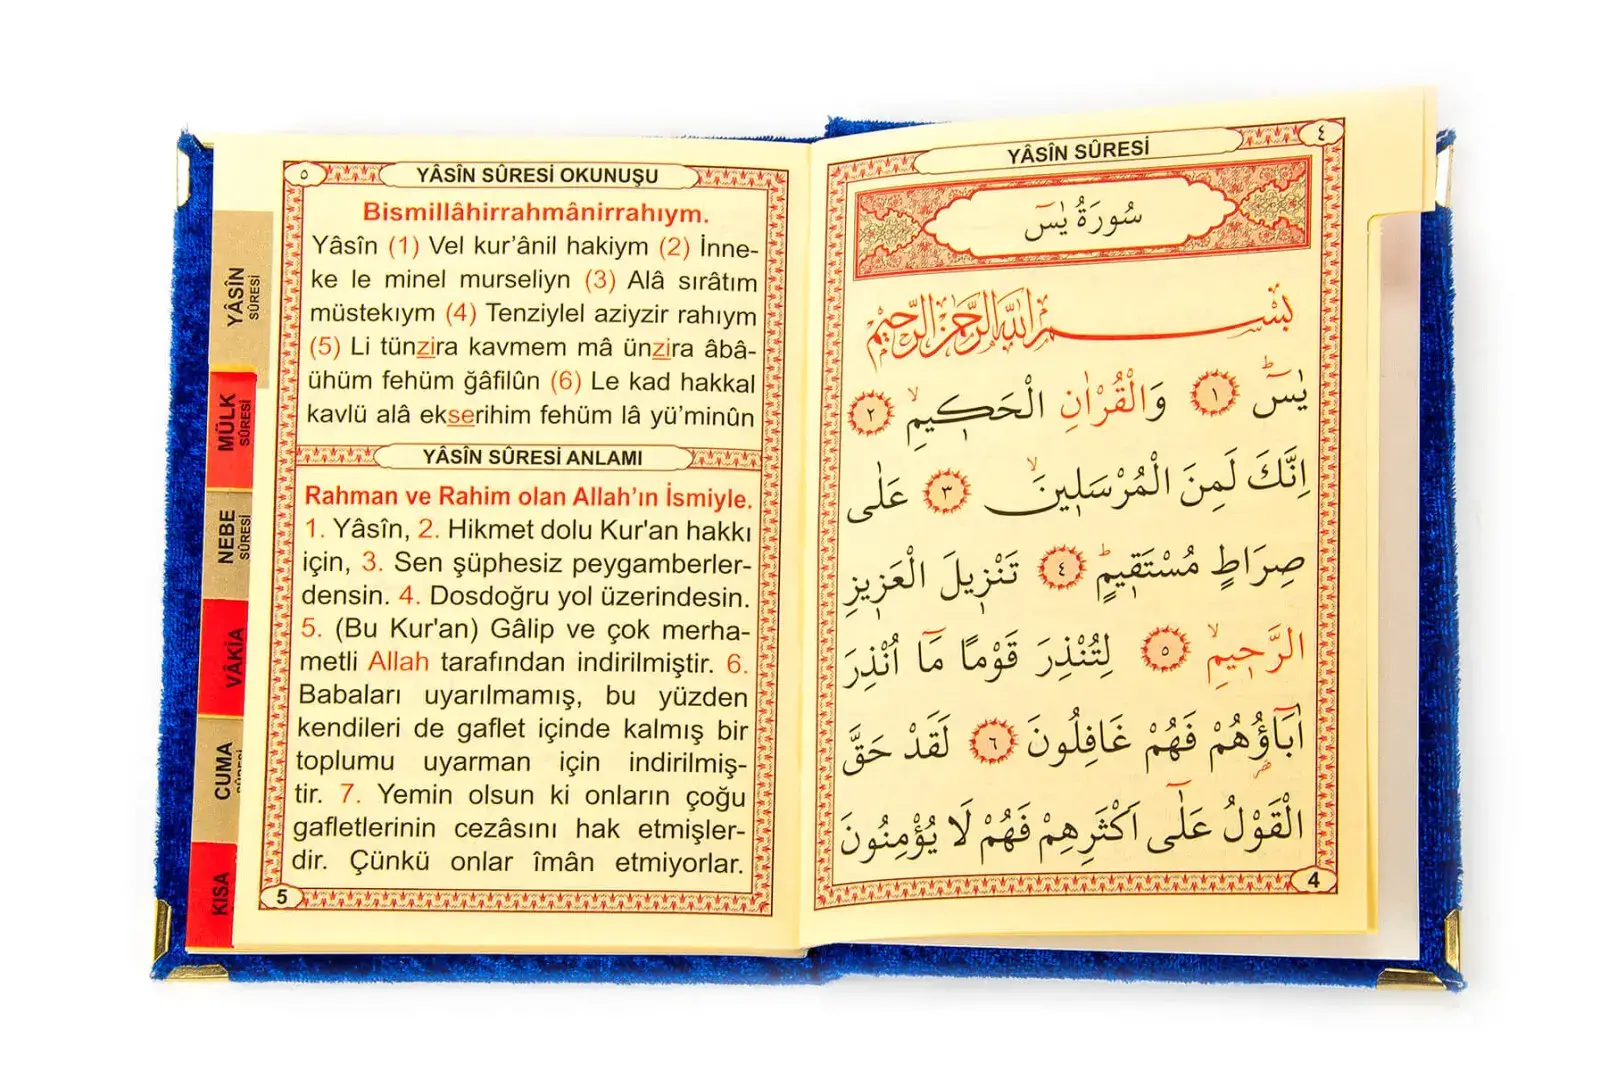 ٤
YÂSÎN SÛRESİ
سُورَةُ يٰسٓ
بِسْمِ اللّٰهِ الرَّحْمٰنِ الرَّحٖيمِ
يٰسٓ ١ وَالْقُرْاٰنِ الْحَكٖيمِ ٢
اِنَّكَ لَمِنَ الْمُرْسَلٖينَ ٣ عَلٰى
صِرَاطٍ مُسْتَقٖيمٍ ٤ تَنْزٖيلَ الْعَزٖيزِ
الرَّحٖيمِ ٥ لِتُنْذِرَ قَوْمًا مَٓا اُنْذِرَ
اٰبَٓاؤُهُمْ فَهُمْ غَافِلُونَ ٦ لَقَدْ حَقَّ
الْقَوْلُ عَلٰٓى اَكْثَرِهِمْ فَهُمْ لَا يُؤْمِنُونَ
4
٥
YÂSÎN SÛRESİ OKUNUŞU
Bismillâhirrahmânirrahıym.
Yâsîn (1) Vel kur’ânil hakiym (2) İnne-
ke le minel murseliyn (3) Alâ sırâtım
müstekıym (4) Tenziylel aziyzir rahıym
(5) Li tünzira kavmem mâ ünzira âbâ-
ühüm fehüm ğâfilûn (6) Le kad hakkal
kavlü alâ ekserihim fehüm lâ yü’minûn
YÂSÎN SÛRESİ ANLAMI
Rahman ve Rahim olan Allah’ın İsmiyle.
1. Yâsîn, 2. Hikmet dolu Kur'an hakkı
için, 3. Sen şüphesiz peygamberler-
densin. 4. Dosdoğru yol üzerindesin.
5. (Bu Kur'an) Gâlip ve çok merha-
metli Allah tarafından indirilmiştir. 6.
Babaları uyarılmamış, bu yüzden
kendileri de gaflet içinde kalmış bir
toplumu uyarman için indirilmiş-
tir. 7. Yemin olsun ki onların çoğu
gafletlerinin cezâsını hak etmişler-
dir. Çünkü onlar îmân etmiyorlar.
5
YÂSÎN
SÛRESİ
MÜLK
SÛRESİ
NEBE
SÛRESİ
VÂKİA
CUMA
SÛRESİ
KISA